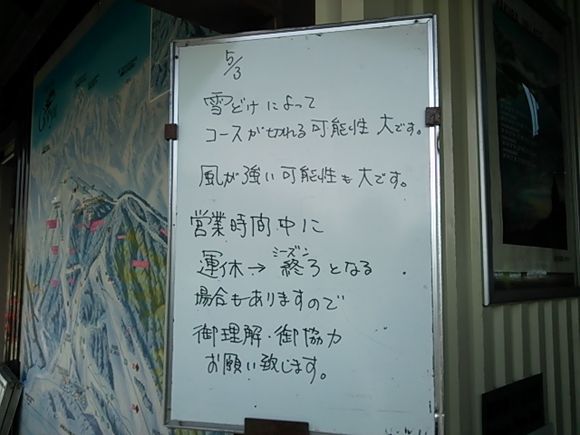 5/3
雪どけによって
コースが切れる可能性 大です。
風が強い可能性も大です。
営業時間中に
運休→シーズン終了となる
場合もありますので
御理解・御協力
お願い致します。